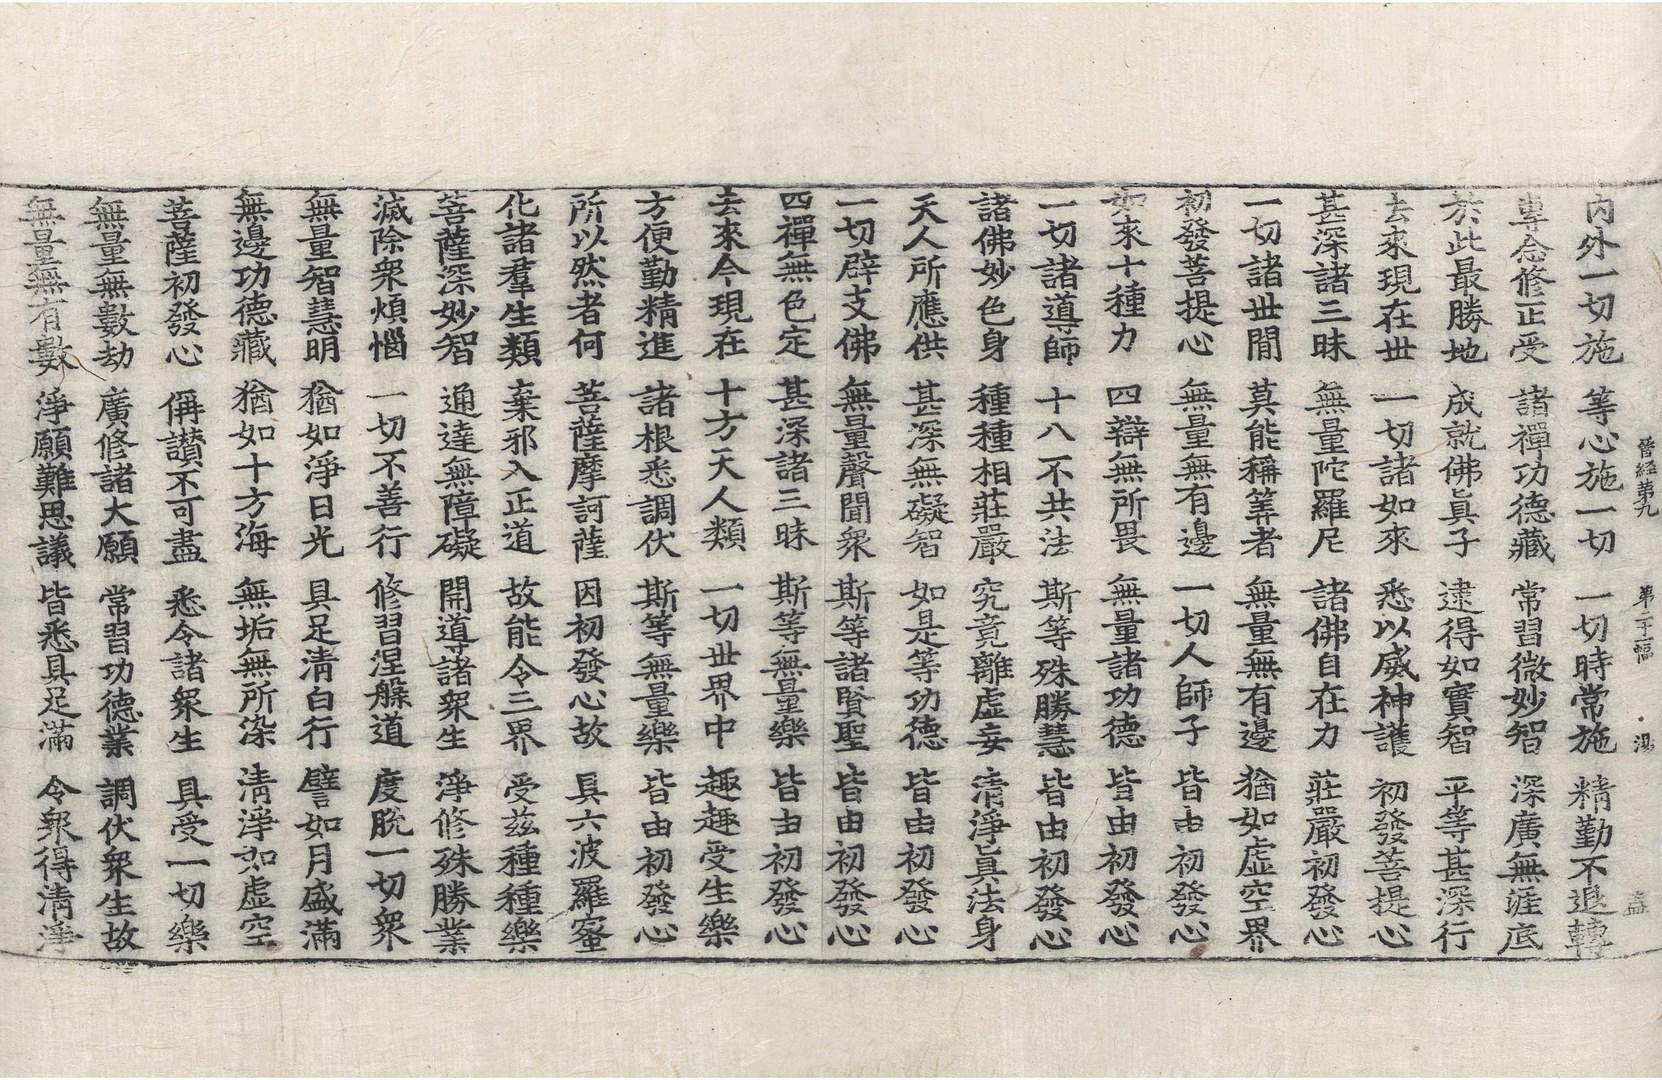 晉經第九 第二十幅 湯 盖
內外一切施 等心施一切 一切時常施 精勤不退轉
專念修正受 諸禪功德藏 常習微妙智 深廣無涯底
於此最勝地 成就佛真子 逮得如寶智 平等甚深行
去來現在世 一切諸如來 悉以威神護 初發菩提心
甚深諸三昧 無量陀羅尼 諸佛自在力 莊嚴初發心
一切諸世閒 莫能稱筭者 無量無有邊 猶如虛空界
初發菩提心 無量無有邊 一切人師子 皆由初發心
如來十種力 四辯無所畏 無量諸功德 皆由初發心
一切諸導師 十八不共法 斯等殊勝慧 皆由初發心
諸佛妙色身 種種相莊嚴 究竟離虛妄 清淨真法身
天人所應供 甚深無礙智 如是等功德 皆由初發心
一切辟支佛 無量聲聞衆 斯等諸賢聖 皆由初發心
四禪無色定 甚深諸三昧 斯等無量樂 皆由初發心
去來今現在 十方天人類 一切世界中 趣趣受生樂
方便勤精進 諸根悉調伏 斯等無量樂 皆由初發心
所以然者何 菩薩摩訶薩 因初發心故 具六波羅蜜
化諸羣生類 棄邪入正道 故能令三界 受兹種種樂
菩薩深妙智 通達無障礙 開導諸衆生 淨修殊勝業
滅除衆煩惱 一切不善行 修習涅槃道 度脫一切衆
無量智慧明 猶如淨日光 具足清白行 譬如月盛滿
無邊功德藏 猶如十方海 無垢無所染 清淨如虛空
菩薩初發心 偁讚不可盡 悉令諸衆生 具受一切樂
無量無數劫 廣修諸大願 常習功德業 調伏衆生故
無量無有數 淨願難思議 皆悉具足滿 令衆得清淨